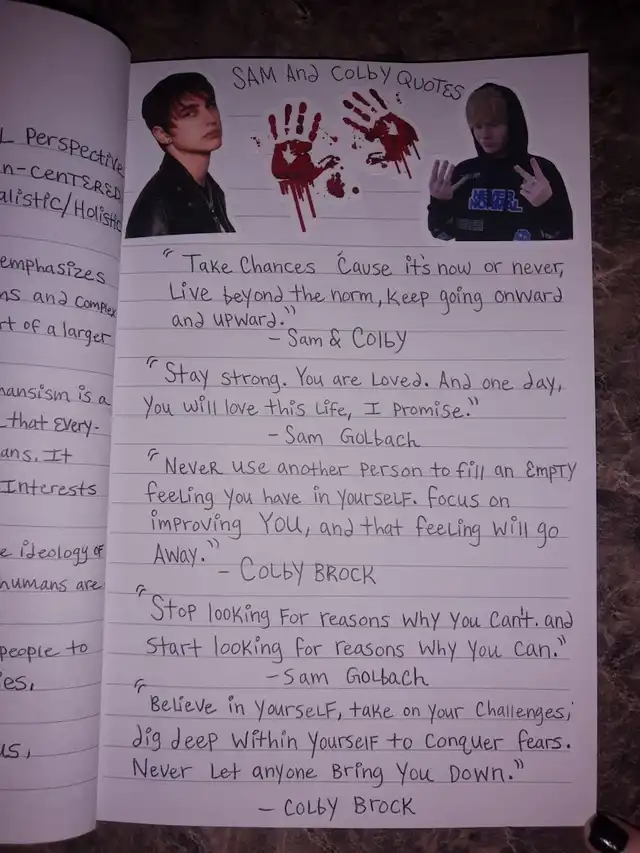 L Perspective
n-centered
alistic/Holistic
emphasizes
ns and complex
rt of a larger
mansism is a
that Every-
ans. It
Interests
e ideology of
humans are
people to
ies,
us,
SAM And COLBY QUOTES
NEVER
NORMAL
"Take Chances 'Cause it's now or never,
Live beyond the norm, keep going onward
and upward."
- Sam & Colby
"Stay strong. You are Loved. And one day,
You will love this life, I promise."
- Sam Golbach
"Never use another person to fill an Empty
feeling you have in yourself. Focus on
improving YOU, and that feeling will go
Away."
- COLBY BROCK
"Stop looking For reasons why you can't. and
Start looking for reasons why you can."
- Sam Golbach
"Believe in yourself, take on your challenges,
dig deep within yourself to conquer fears.
Never Let anyone Bring You Down."
- COLBY BROCK